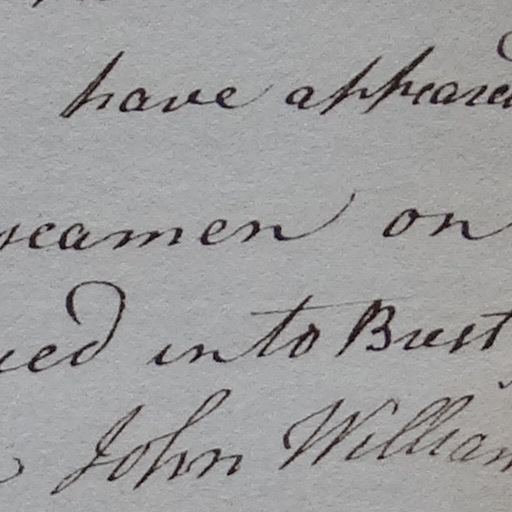 have appeared
seamen on
ied into Brest
John William